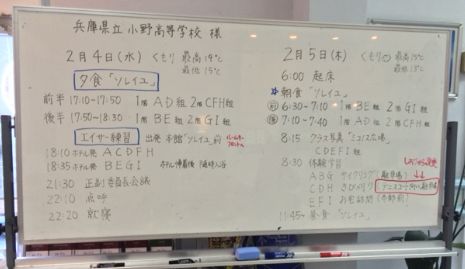 兵庫県立 小野高等学校 様
2月4日(水) くもり 最高19℃
最低15℃
夕食「ソレイユ」
前半 17:10-17:50 1階 AD組 2階 CFH組
後半 17:50-18:30 1階 BE組 2階 GI組
エイサー練習 出発 本館「ソレイユ」前
18:10 ホテル発 ACDFH
18:35 ホテル発 BEGI ホテル帰着後 随時入浴
21:30 正副委員長会議
22:10 点呼
22:20 就寝
2月5日(木) くもり 最高15℃
最低13℃
6:00 起床
朝食「ソレイユ」
前 6:30-7:10 1階 BE組 2階 GI組
後 7:10-7:40 1階 AD組 2階 CFH組
8:15 クラス写真「ミュウ広場」
CDEFI組
8:30 体験学習
ABG サイクリング(駐車場)
CDH さとうきび刈り テニスコート向い駐車場
EFI お宅訪問
11:45~ 昼食「ソレイユ」